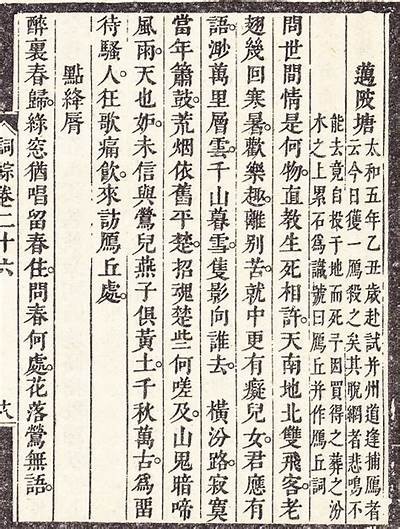 邁陂塘 太和五年乙丑歲赴試并州道逢捕鴈者
云今日獲一鴈殺之矣其脫網者悲鳴不
能去竟自投于地而死予因買得之葬之汾
水之上累石爲識號曰鴈丘并作鴈丘詞
問世間情是何物直教生死相許天南地北雙飛客老
翅幾回寒暑。歡樂趣。離別苦。就中更有癡兒女。君應有
語。渺萬里層雲。千山暮雪。隻影向誰去。 橫汾路寂寞
當年簫鼓。荒烟依舊平楚。招魂楚些何嗟及山鬼暗啼
風雨。天也妒。未信與鶯兒燕子俱黃土。千秋萬古。爲畱
待騷人。狂歌痛飲。來訪鴈丘處
點絳脣
醉裏春歸。綠窓猶唱留春住。問春何處。花落鶯無語。
詞綜卷二十六